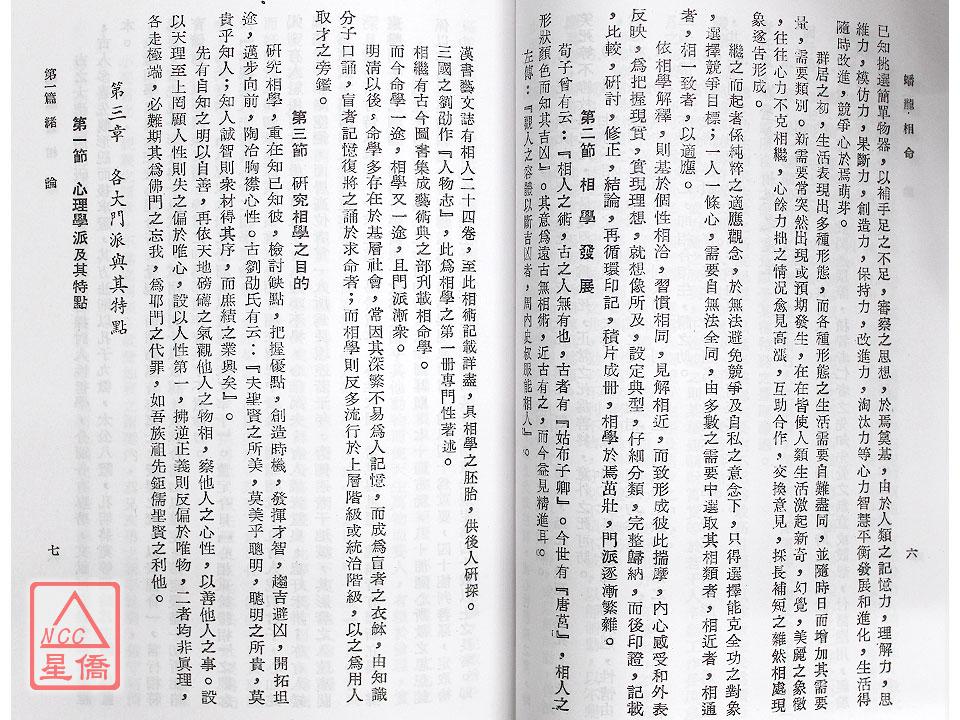 蟠龍相命
六
已知挑選簡單物器，以補手足之不足，審察之思想，於焉奠基，由於人類之記憶力，理解力，思
維力，模仿力，果斷力，創造力，保持力，改進力，淘汰力等心力智慧平衡發展和進化，生活得
隨時改進，競爭心於焉萌芽。
群居之初，生活表現出多種形態，而各種形態之生活需要自難盡同，並隨時日而增加其需要
量，需要類別。新需要常突然出現或預期發生，在在皆使人類生活激起新奇，幻覺，美麗之象徵
，往往心力不克相繼，心餘力拙之情况愈見高漲，互助合作，交換意見，採長補短之雜然相處現
象遂告形成。
繼之而起者係純粹之適應觀念，於無法避免競爭及自私之意念下，只得選擇能克全功之對象
，選擇競爭目標；一人一條心，需要自無法全同，由多數之需要中選取其相類者，相近者，相通
者，相一致者，以適應。
依相學解釋，則基於個性相洽，習慣相同，見解相近，而致形成彼此揣摩，內心感受和外表
反映，為把握現實，實現理想，就想像所及，設定典型，仔細分類，完整歸納，而後印證，記載
，比較，研討，修正，結論，再循環印記，積片成冊，相學於焉茁壯，門派逐漸繁雜。
第二節　相學發展
荀子曾有云：『相人之術，古之人無有也，古者有『姑布子卿』。今世有『唐莒』，相人之
形狀顏色而知其吉凶』。其意爲遠古無相術，近古有之，而今益見精進耳。
左傳：『觀人之容體以斷吉凶者，周內史叔服能相人』。
漢書藝文誌有相人二十四卷，至此相術記載詳盡，具相學之胚胎，供後人研探。
三國之劉劭作『人物志』，此爲相學之第一冊專門性著述。
相繼有古今圖書集成藝術典之部刋載相命學。
而今命學一途，相學又一途，且門派漸衆。
明清以後，命學多存在於基層社會，常因其深繁不易爲人記憶，而成爲盲者之衣鉢，由知識
分子口誦，盲者記憶復將之誦於求命者；而相學則反多流行於上層階級或統治階級，以之爲用人
取才之旁鑑。
第三節　研究相學之目的
研究相學，重在知已知彼，檢討缺點，把握優點，創造時機，發揮才智，趨吉避凶，開拓坦
途，邁步向前，陶冶胸襟心性。古劉劭氏有云：『夫聖賢之所美，莫美乎聰明，聰明之所貴，莫
貴乎知人；知人誠智則衆材得其序，而庶績之業興矣』。
先有自知之明以自善，再依天地磅礴之氣觀他人之物相，察他人之心性，以善他人之事。設
以天理至上罔顧人性則失之偏於唯心，設以人性第一，拂逆正義則反偏於唯物，二者均非眞理，
各走極端，必難期其爲佛門之忘我，爲耶門之代罪，如吾族祖先鉅儒聖賢之利他。
第三章　各大門派與其特點
第一節　心理學派及其特點
第一篇　緒論
七
NCC
星僑